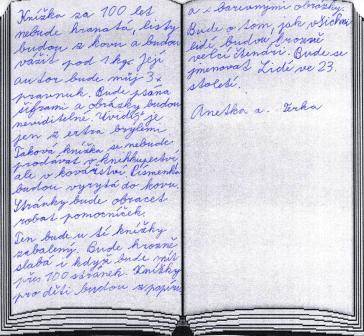 Knížka za 100 let
nebude hranatá, listy
budou z kovu a budou
vážit pod 1 kg. Její
autor bude můj 3x
pravnuk. Bude psána
šiframi a obrázky budou
neviditelné. Uvidíš je
jen z extra brýlemi
Taková knížka se nebude
prodávat v knihkupectví
ale v kovářství Písmenka
budou vyrytá do kovu.
Stránky bude obracet
robot pomocníček.
Ten bude u té knížky
zabalený. Bude hrozně
slabá i když bude mít
přes 100 stránek. Knížky
pro děti budou z papíru
a s barevnými obrázky.
Bude o tom, jak všichni
lidi budou hrozně
velcí čtenáři. Bude se
jmenovat Lidi ve 23.
století.
Anetka a. Jirka